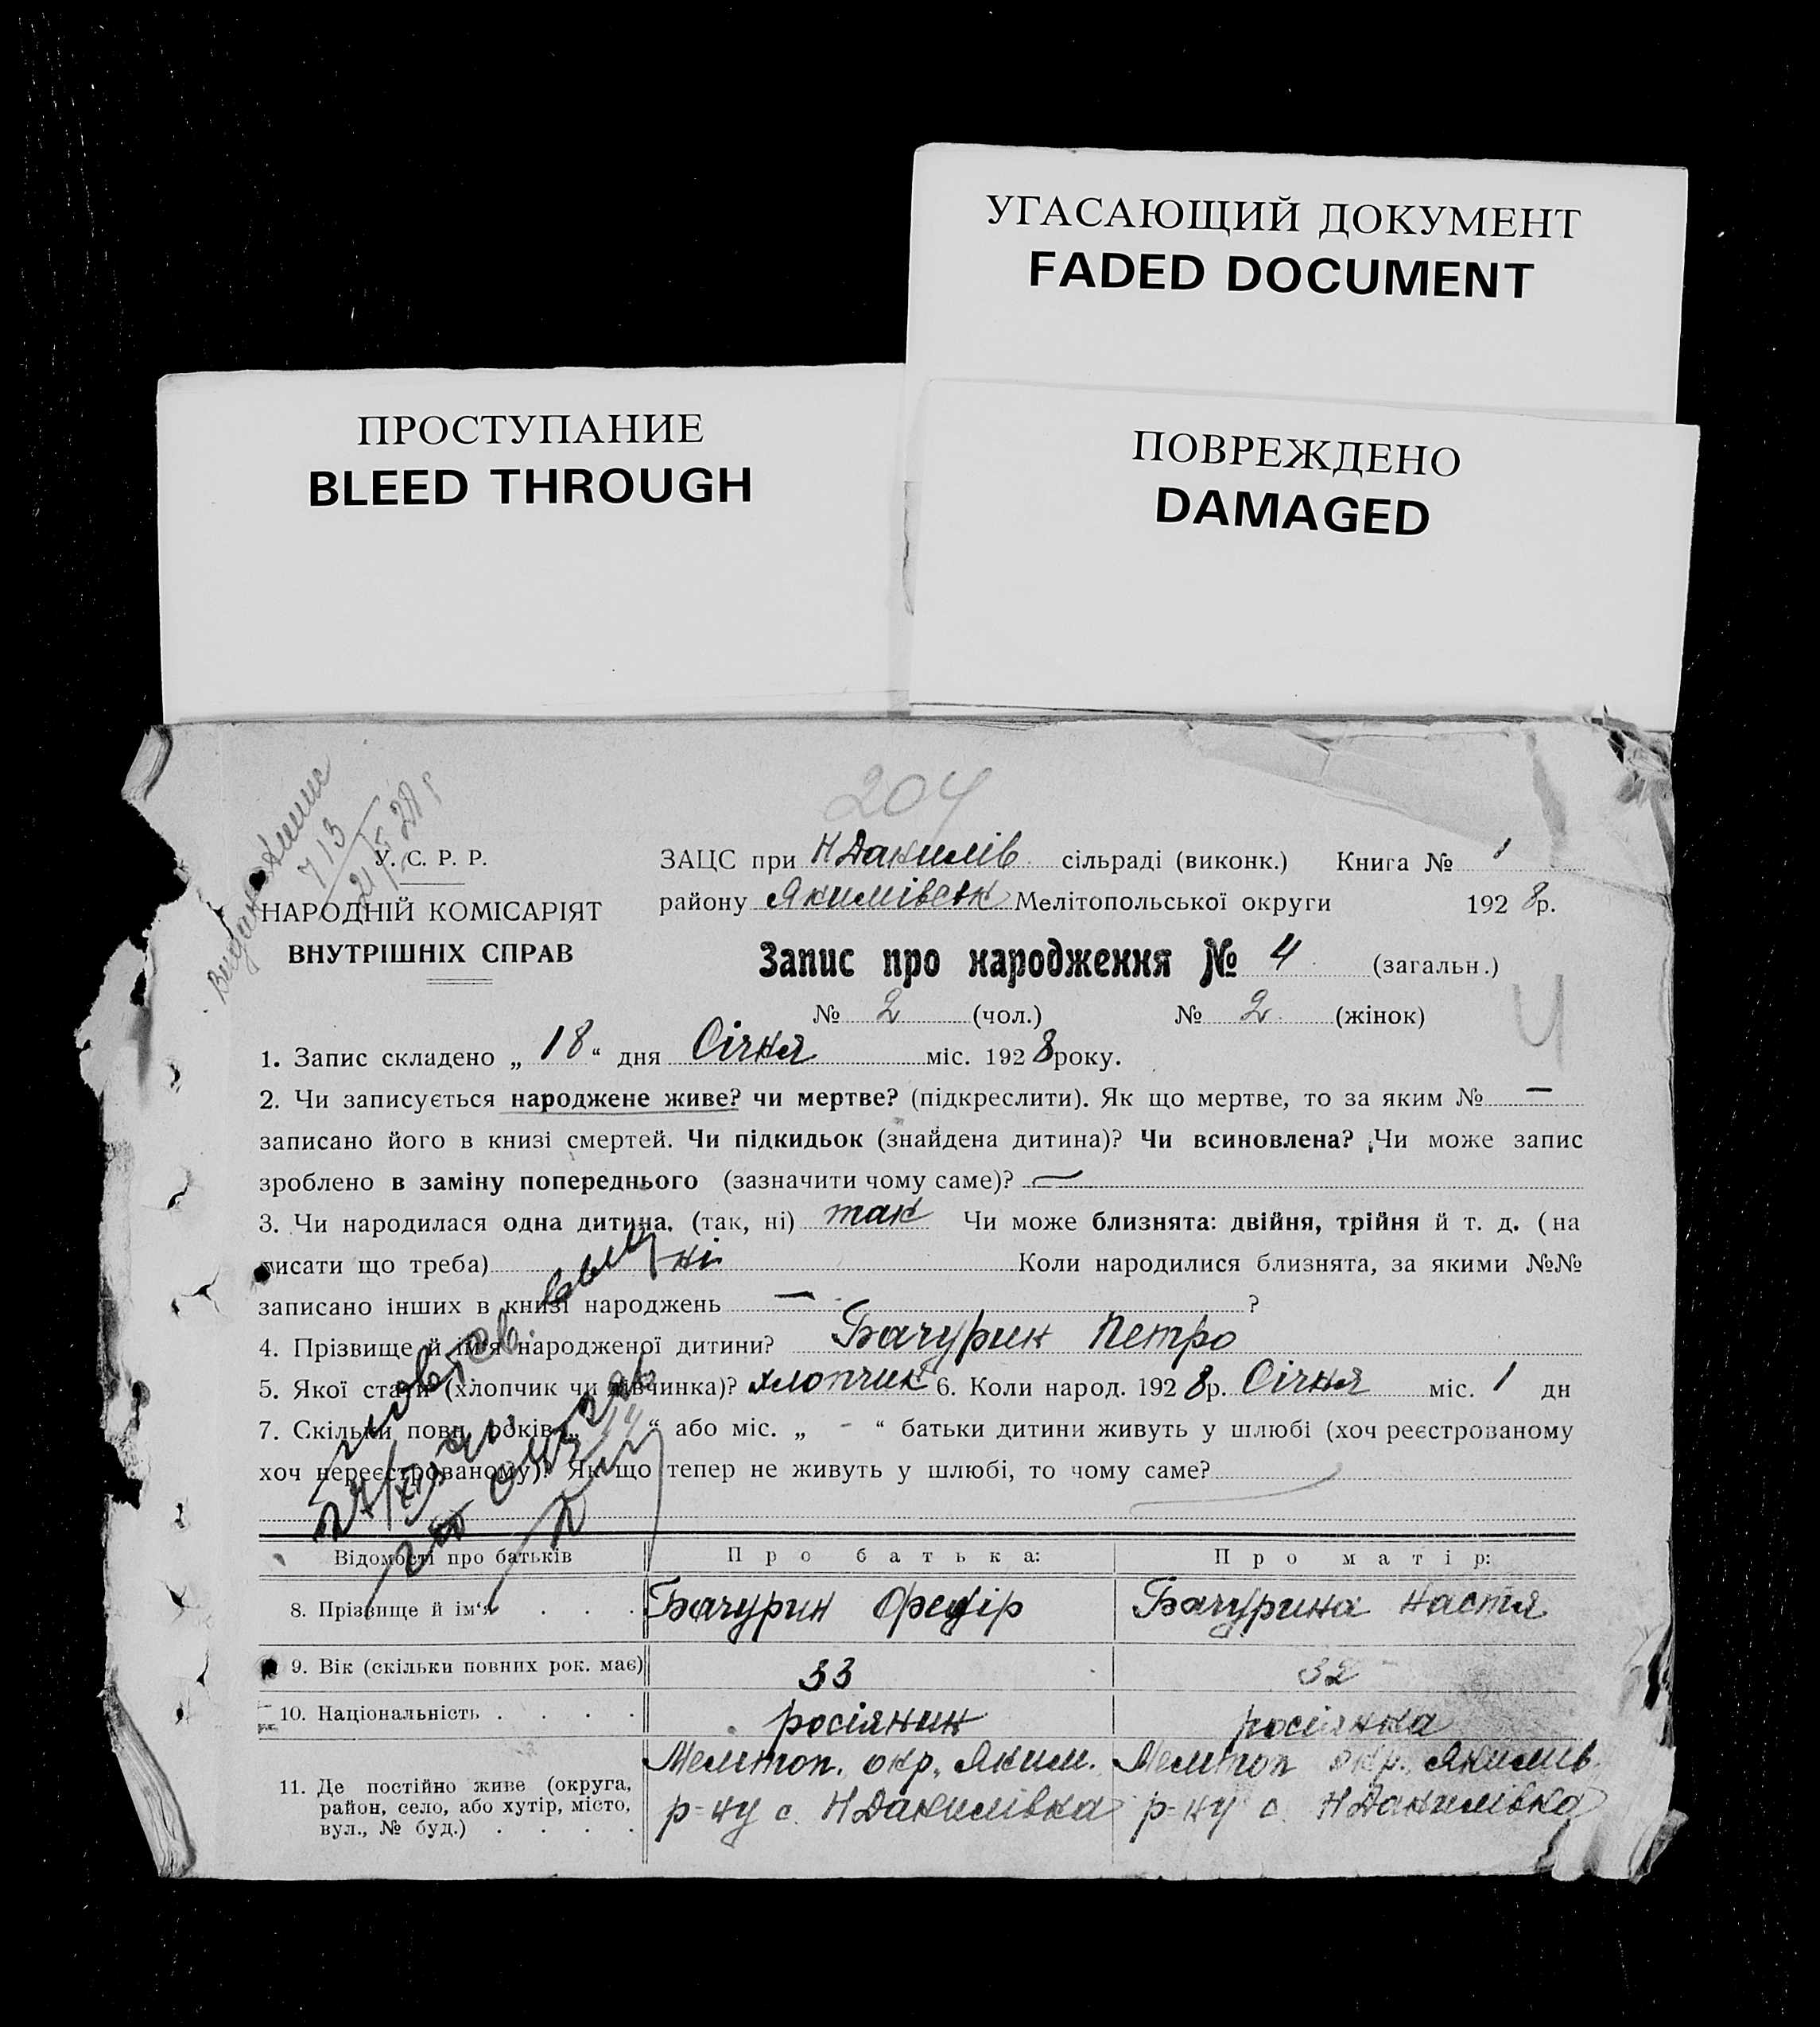 УГАСАЮЩИЙ ДОКУМЕНТ
FADED DOCUMENT
ПРОСТУПАНИЕ
BLEED THROUGH
ПОВРЕЖДЕНО
DAMAGED
204
713
У. С. Р. Р.
НАРОДНІЙ КОМІСАРІЯТ
ВНУТРІШНІХ СПРАВ
ЗАЦС при Н Данилів сільраді (виконк.) Книга № 1
району Якимівськ Мелітопольської округи 1928р.
Запис про народження № 4 (загальн.)
№ 2 (чол.) № 2 (жінок)
4
1. Запис складено „ 18 “ дня Січня міс. 1928 року.
2. Чи записується народжене живе? чи мертве? (підкреслити). Як що мертве, то за яким № —
записано його в книзі смертей. Чи підкидьок (знайдена дитина)? Чи всиновлена? Чи може запис
зроблено в заміну попереднього (зазначити чому саме)? —
3. Чи народилася одна дитина. (так, ні) так Чи може близнята: двійня, трійня й т. д. (на
писати що треба) ні Коли народилися близнята, за якими №№
записано інших в книзі народжень — ?
4. Прізвище й ім'я народженої дитини? Бачурин Петро
5. Якої стати (хлопчик чи дівчинка)? хлопчик 6. Коли народ. 1928р. Січня міс. 1 дн
7. Скільки повн. років „ 14 “ або міс. „ - “ батьки дитини живуть у шлюбі (хоч реєстрованому
хоч нереєстрованому)? Як що тепер не живуть у шлюбі, то чому саме?
Відомості про батьків Про батька: Про матір:
8. Прізвище й ім'я . . . Бачурин Федір Бачурина Настя
9. Вік (скільки повних рок. має) 33 32
10. Національність . . . . росіянин росіянка
11. Де постійно живе (округа, район, село, або хутір, місто, вул., № буд.) . . . .
Мелітоп. окр., Яким. Мелітоп окр., Якимів.
р-ну с. Н Данилівка р-ну с. Н Данилівка